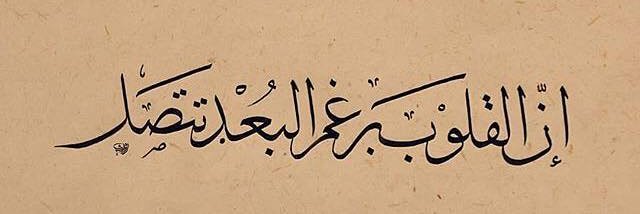 إنّ القلوب برغم البُعْد تتصل